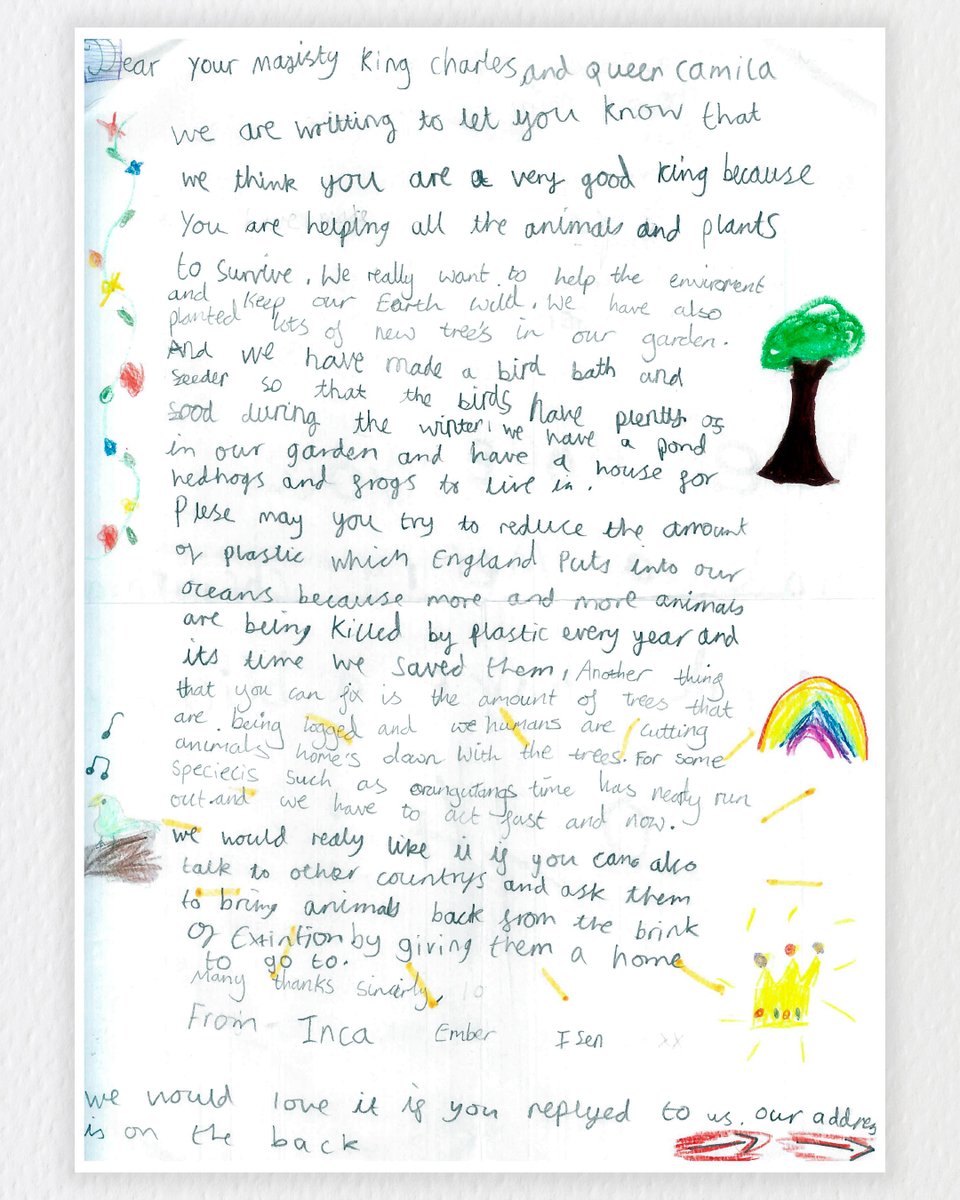 Dear your majisty King charles, and queen camila
we are writting to let you know that
we think you are a very good king because
You are helping all the animals and plants
to survive. We really want to help the enviroment
and keep our Earth wild. We have also
planted lots of new tree's in our garden.
And we have made a bird bath and
feeder so that the birds have plenty of
food during the winter. we have a pond
in our garden and have a house for
hedhogs and frogs to live in.
Plese may you try to reduce the amount
of plastic which England Puts into our
oceans because more and more animals
are being killed by plastic every year and
its time we saved them, Another thing
that you can fix is the amount of trees that
are being logged and we humans are cutting
animals home's down with the trees. For some
speciecis such as orangutangs time has nearly run
out. and we have to act fast and now.
we would realy like it if you can also
talk to other countrys and ask them
to bring animals back from the brink
Of Extintion by giving them a home
to go to.
Many thanks sincirly,
From Inca Ember Isen xx
we would love it if you replyed to us. our addres
is on the back